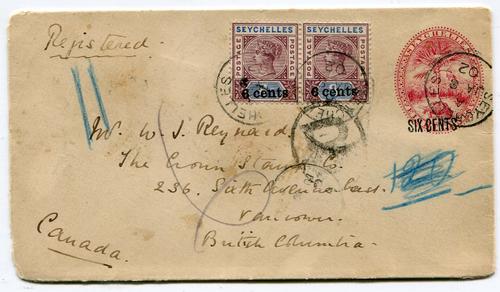 Registered.
SEYCHELLES SEYCHELLES
POSTAGE POSTAGE POSTAGE POSTAGE
6 cents 6 cents
SIX CENTS
Mr. W. S. Reynolds
The Crown Stamp Co.
236. Sixth Avenue East.
Vancouver.
British Columbia.
Canada.